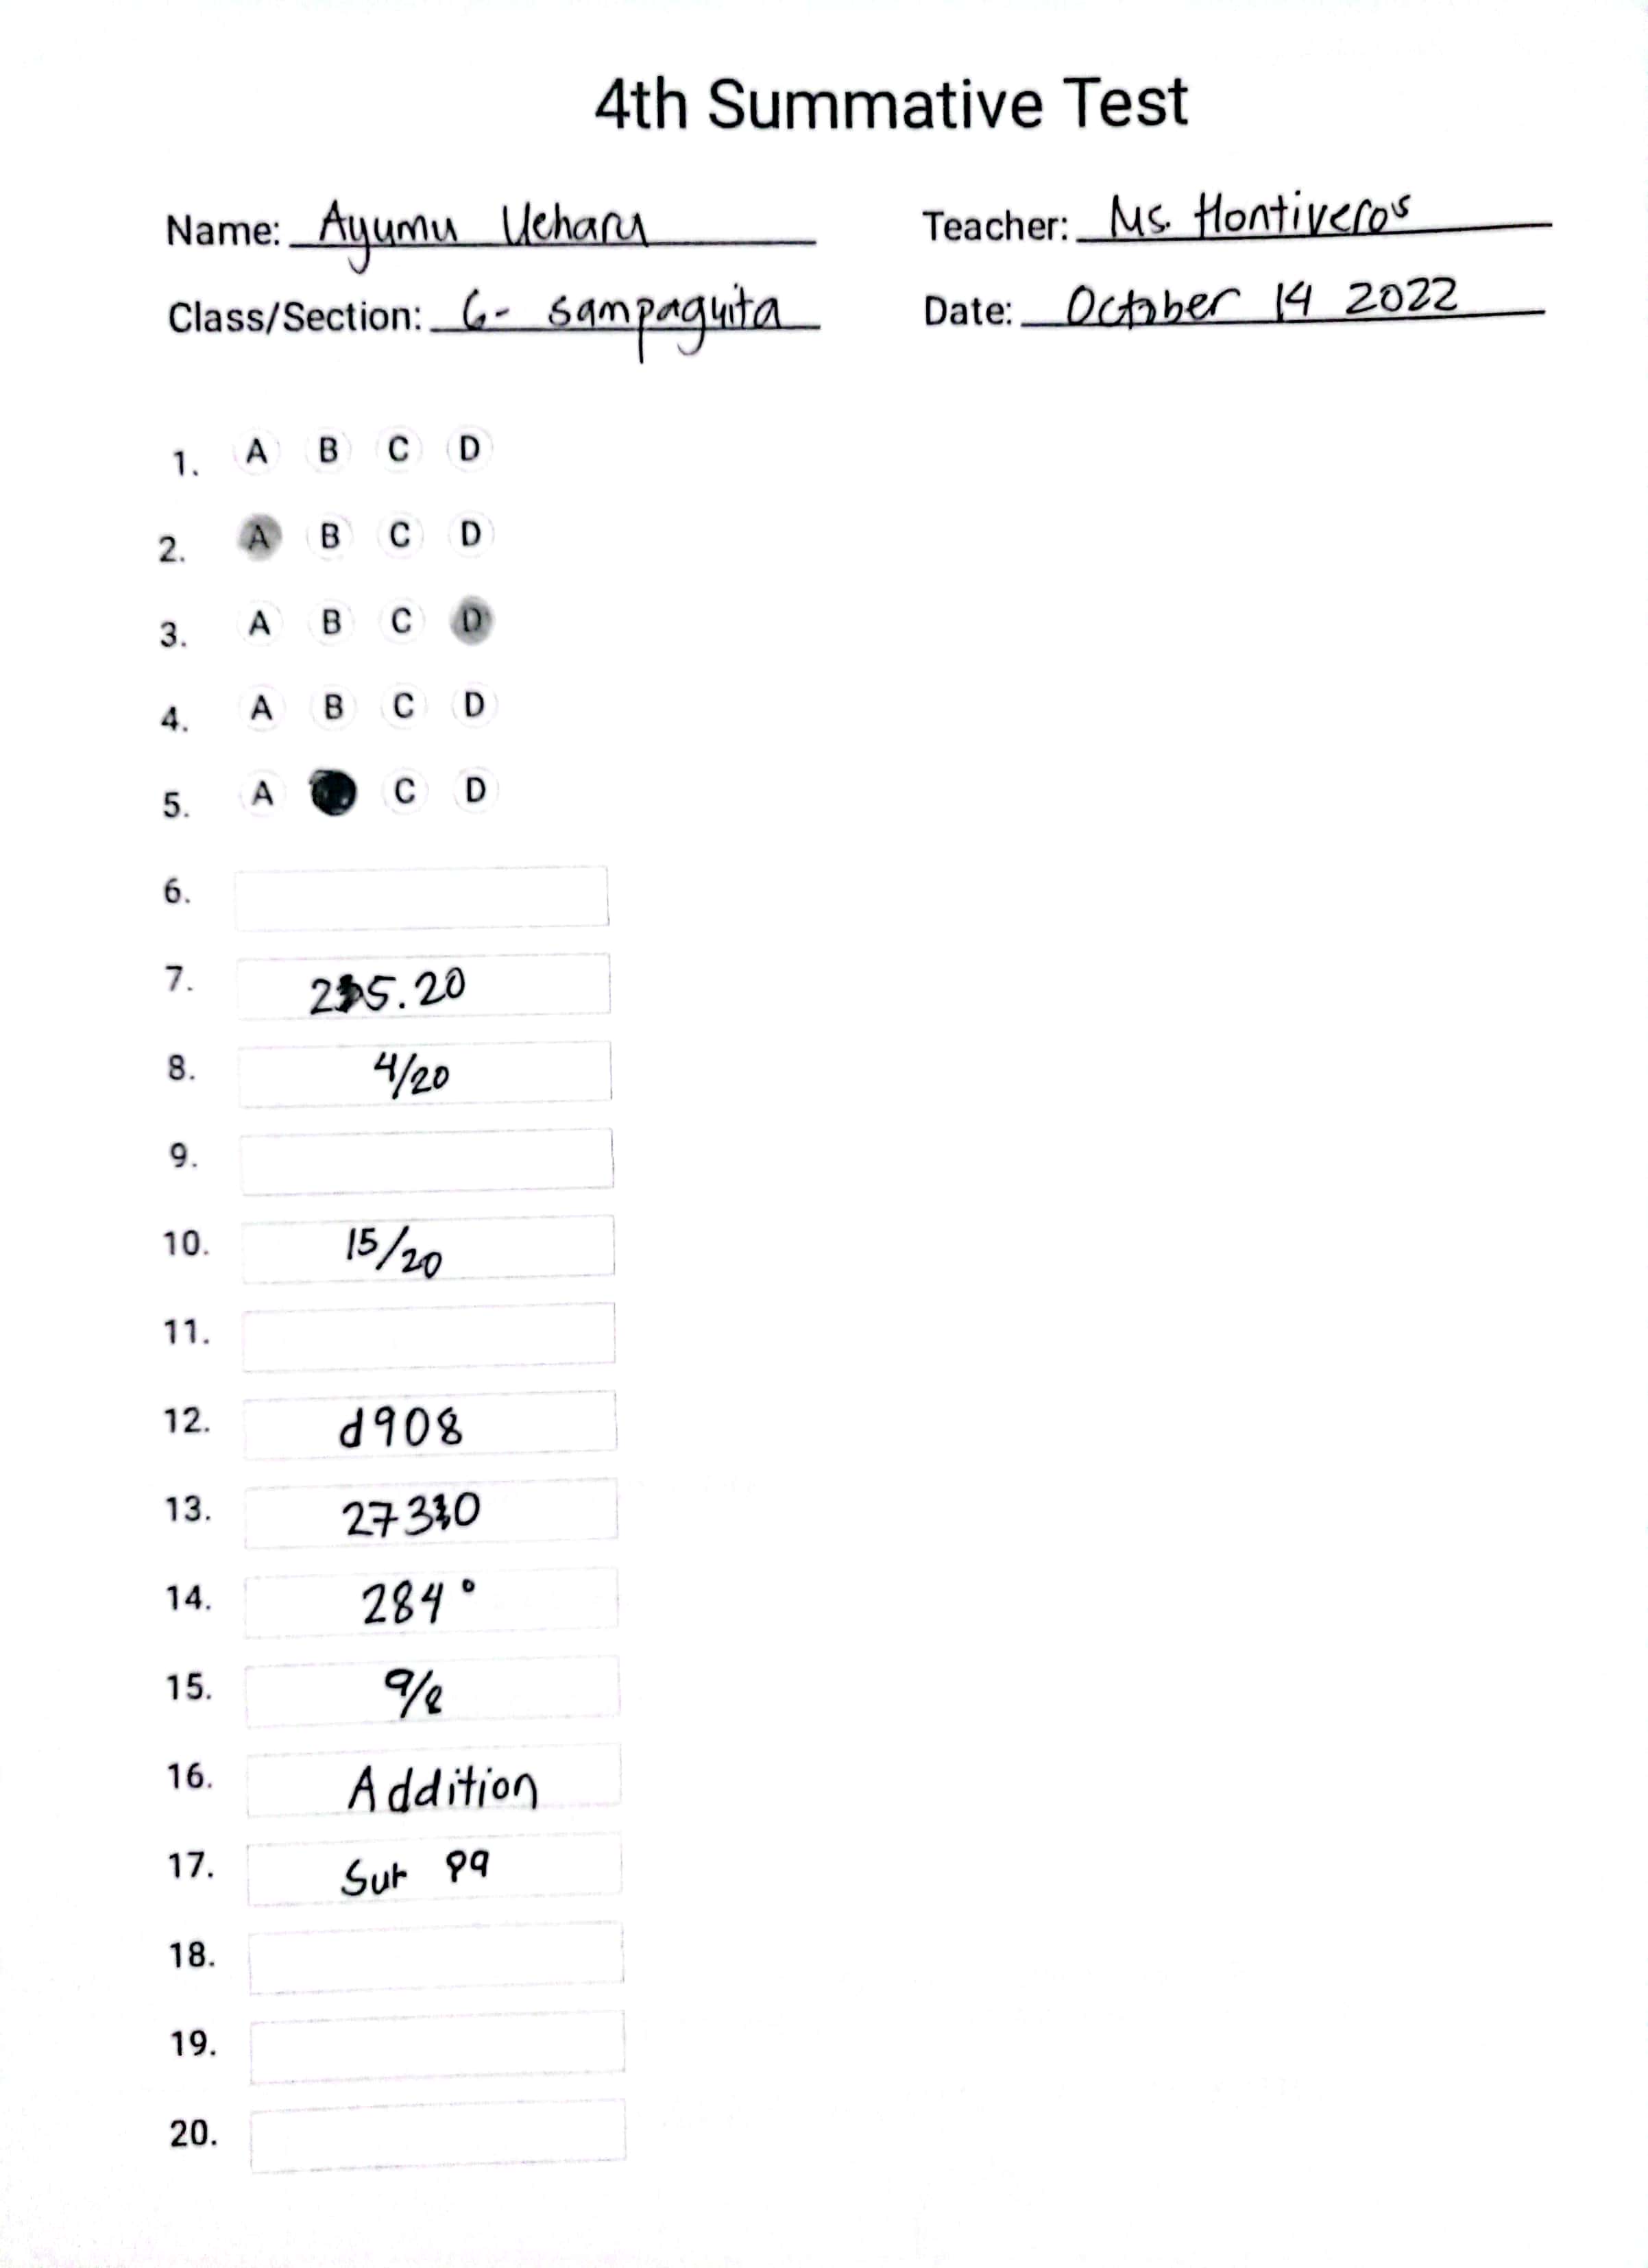 4th Summative Test
Name: Ayumu Uehara Teacher: Ms. Hontiveros
Class/Section: 6- sampaguita Date: October 14 2022
1. A B C D
2. A B C D
3. A B C D
4. A B C D
5. A C D
6.
7. 235.20
8. 4/20
9.
10. 15/20
11.
12. d908
13. 27330
14. 284°
15. 9/8
16. Addition
17. Sur 89
18.
19.
20.